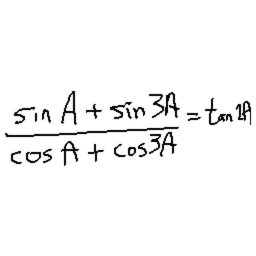 sin A + sin 3A
cos A + cos 3A = tan 2A